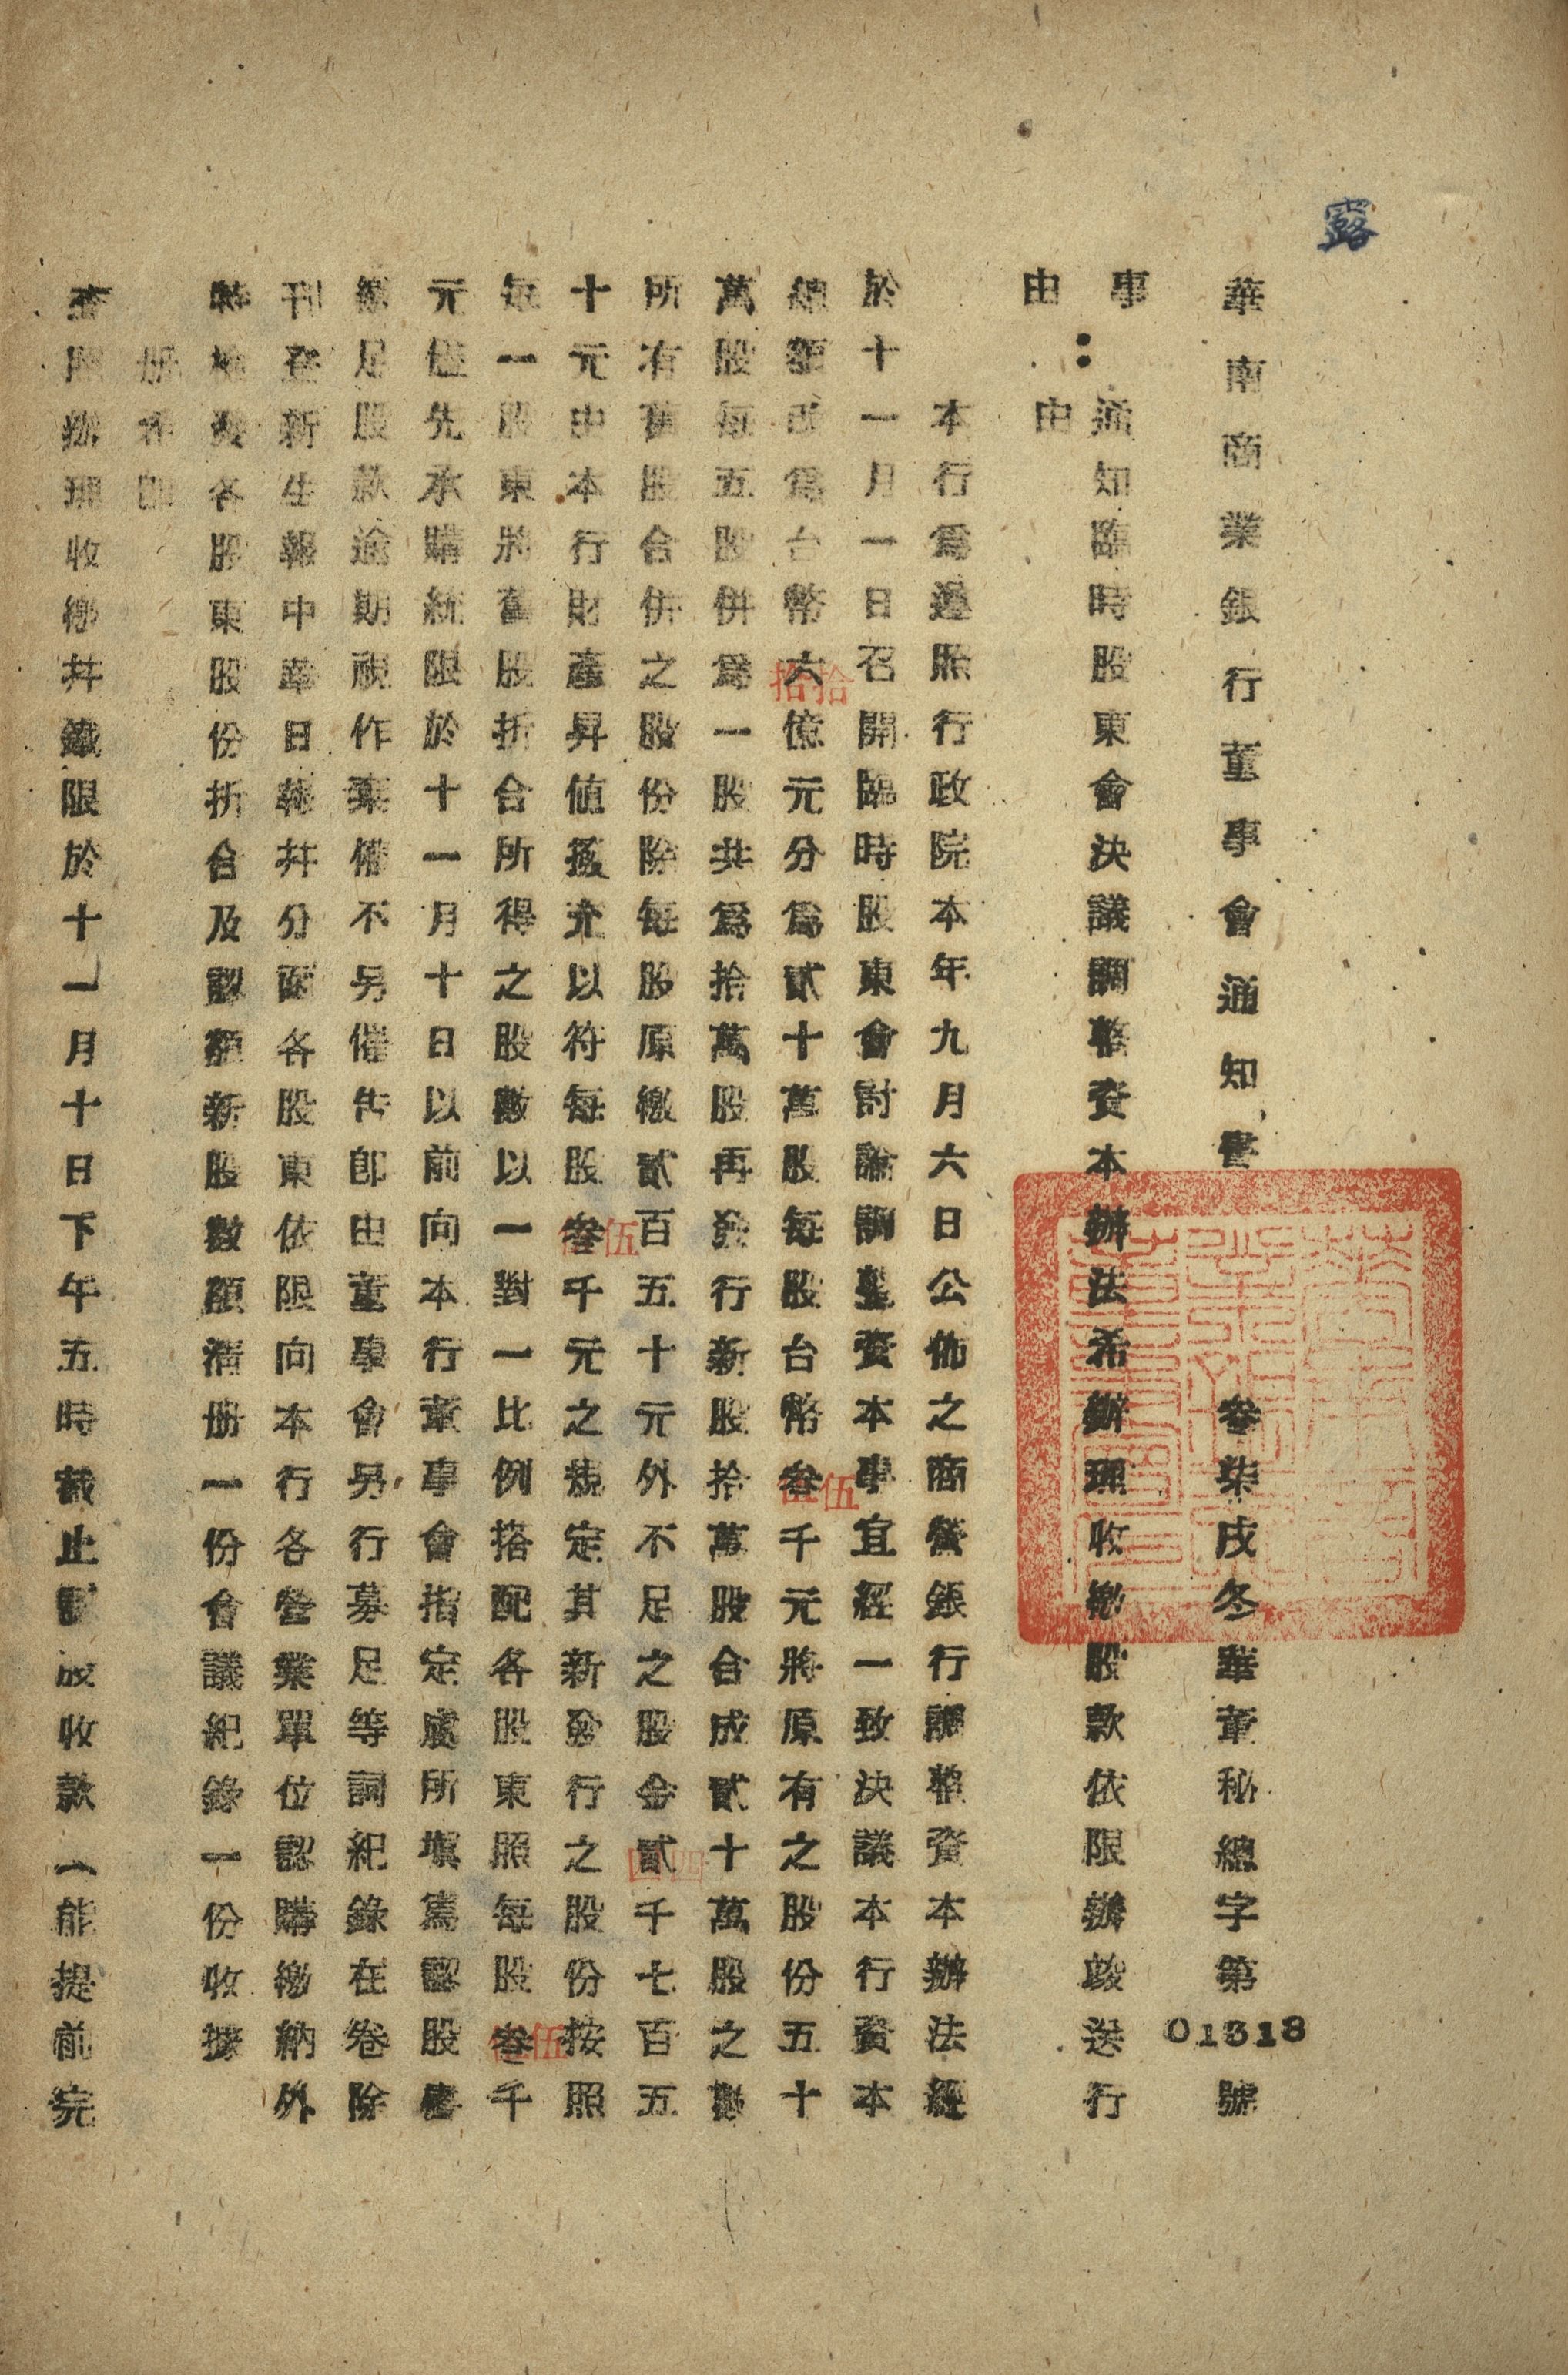 露
華南商業銀行董事會通知書 參柒戌冬華章秘總字第01318號
事：通知臨時股東會決議調整資本辦法希辦理收繳股款依限辦竣送行
由 由
本行為遵照行政院本年九月六日公佈之商營銀行調整資本辦法經
於十一月一日召開臨時股東會討論調整資本事宜經一致決議本行資本
總額改為台幣六億元分為貳十萬股每股台幣叁千元將原有之股份五十
拾拾
伍伍
萬股每五股併為一股共為拾萬股再發行新股拾萬股合成貳十萬股之數
所有舊股合併之股份除每股原繳貳百五十元外不足之股金貳千七百五
四四
十元由本行財產昇值撥充以符每股叁千元之規定其新發行之股份按照
伍伍
每一股東將舊股折合所得之股數以一對一比例搭配各股東照每股叁千
伍伍
元儘先承購統限於十一月十日以前向本行董事會指定處所填寫認股書
繳足股款逾期視作棄權不另催告即由董事會另行募足等詞紀錄在卷除
刊登新生報中華日報并分函各股東依限向本行各營業單位認購繳納外
特檢發各股東股份折合及認額新股數額清册一份會議紀錄一份收據
册希即
查照辦理收繳并鐵限於十一月十日下午五時截止認股收款（能提前完